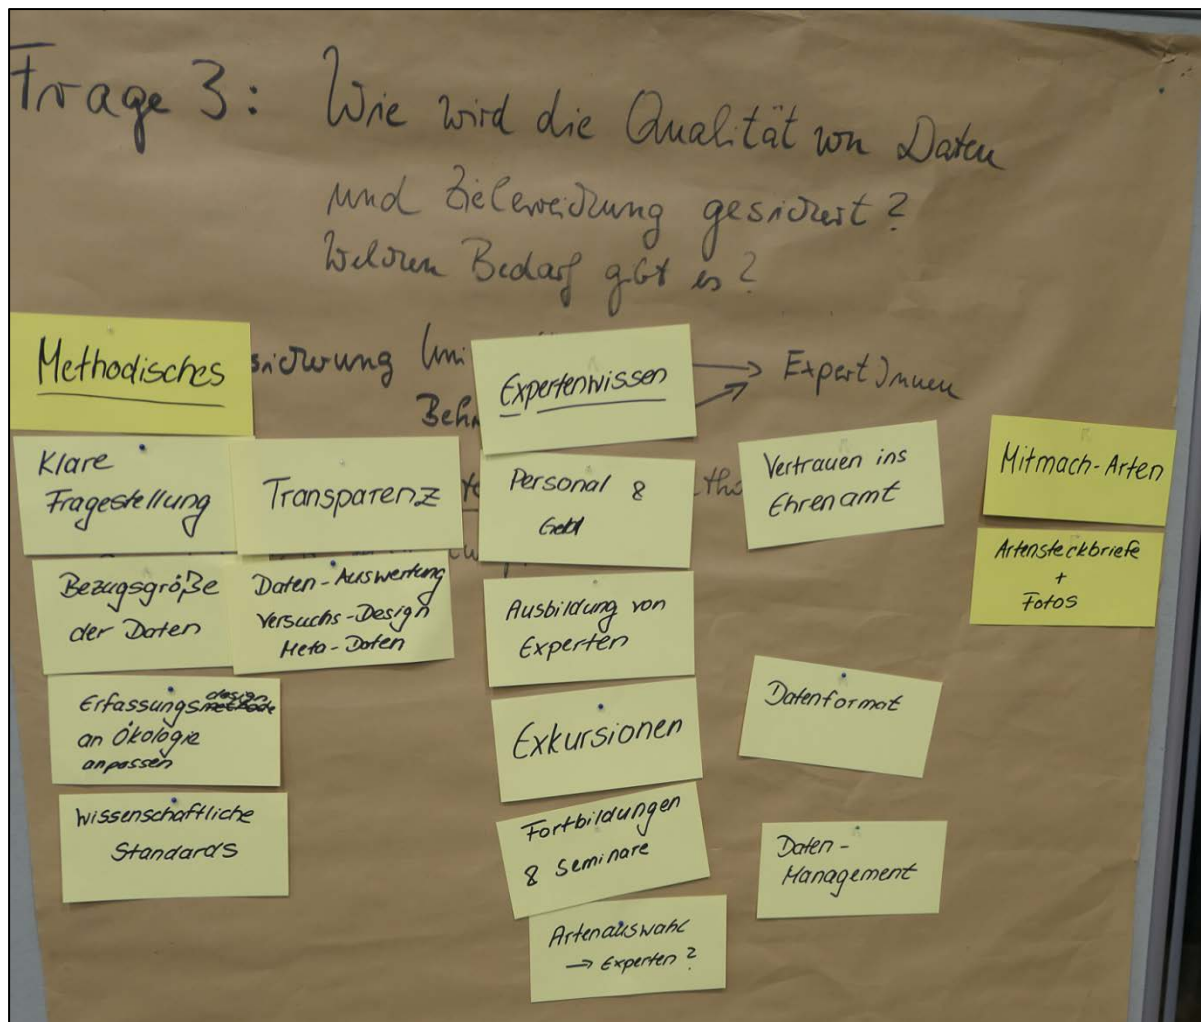 Frage 3: Wie wird die Qualität von Daten
und Zielerreichung gesichert?
Welchen Bedarf gibt es?
Methodisches
sicherung Uni
Expertenwissen
ExpertInnen
Beh
Klare
Fragestellung
Transparenz
Bezugsgröße
der Daten
Daten-Auswertung
Versuchs-Design
Meta-Daten
Erfassungsdesign
an Ökologie
anpassen
Wissenschaftliche
Standards
Personal &
Geld
Ausbildung von
Experten
Exkursionen
Fortbildungen
& Seminare
Artenauswahl
→ Experten?
Vertrauen ins
Ehrenamt
Datenformat
Daten-
Management
Mitmach-Arten
Artensteckbriefe
+
Fotos